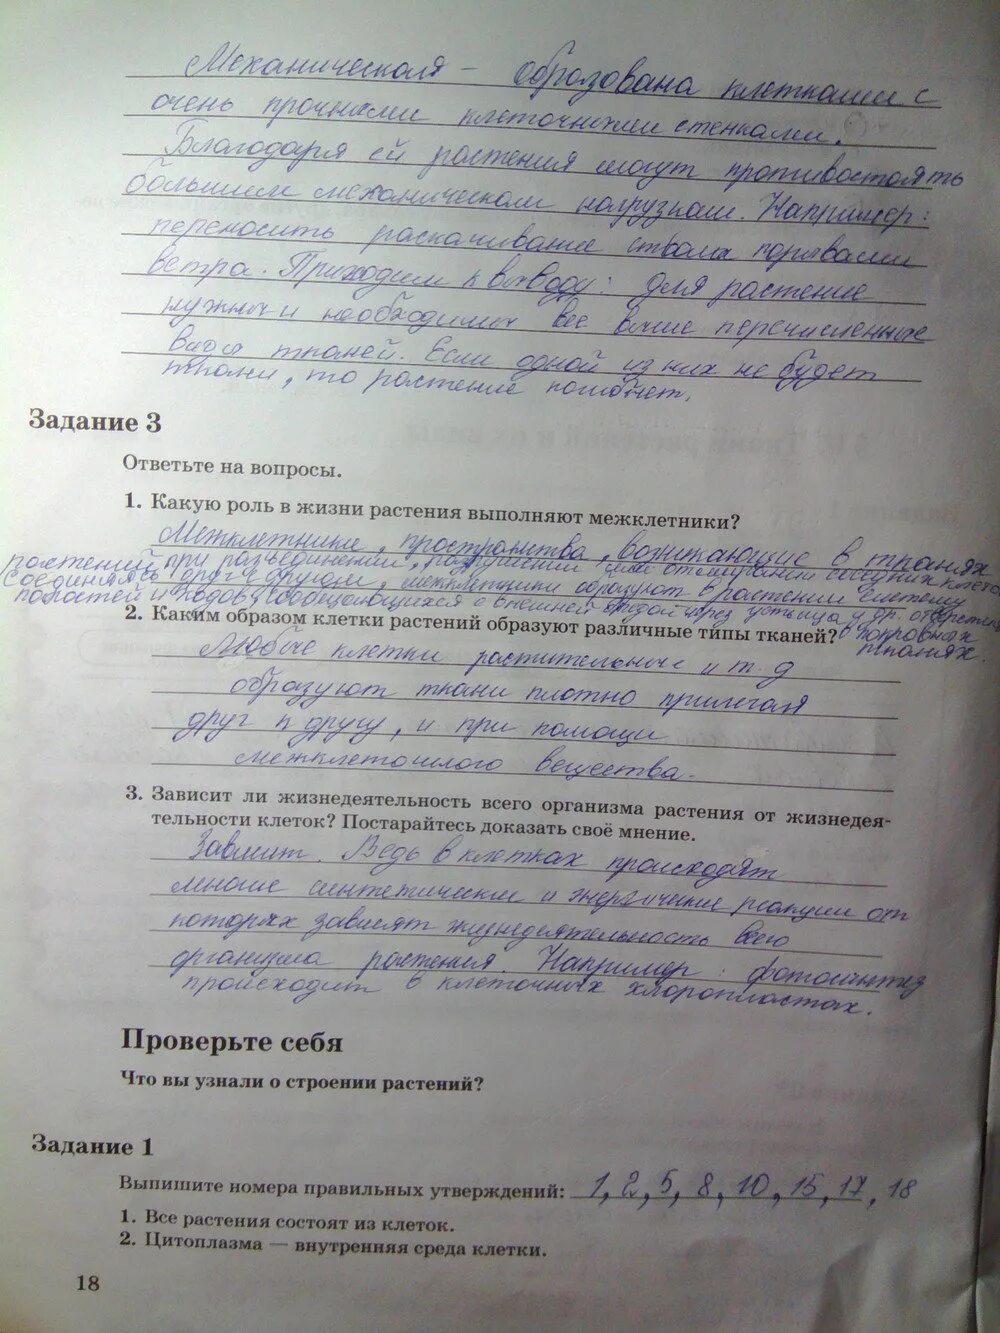 Механическая – образована клетками с
очень прочными клеточными стенками.
Благодаря ей растения могут противостоять
большим механическим нагрузкам. Например:
переносить раскачивание ствола порывами
ветра. Приходим к выводу: для растение
нужны и необходимы все выше перечисленные
виды тканей. Если одной из них не будет
ткани, то растение погибнет.
Задание 3
Ответьте на вопросы.
1. Какую роль в жизни растения выполняют межклетники?
Межклетники, пространства, возникающие в тканях
растений при разъединении, разрушении или отмирании соседних клеток
Соединяясь друг с другом, межклетники образуют в растении систему
полостей и ходов, сообщающихся с внешней средой через устьица и др. отверстия
в покровных
тканях.
2. Каким образом клетки растений образуют различные типы тканей?
Любые клетки растительные и т.д
образуют ткани плотно прилегая
друг к другу, и при помощи
межклеточного вещества.
3. Зависит ли жизнедеятельность всего организма растения от жизнедея-
тельности клеток? Постарайтесь доказать своё мнение.
Зависит. Ведь в клетках происходят
многие синтетические и энергичные реакции от
которых зависят жизнедеятельность всего
организма растения. Например: фотосинтез
происходит в клеточных хлоропластах.
Проверьте себя
Что вы узнали о строении растений?
Задание 1
Выпишите номера правильных утверждений: 1, 2, 5, 8, 10, 15, 17, 18
1. Все растения состоят из клеток.
2. Цитоплазма — внутренняя среда клетки.
18